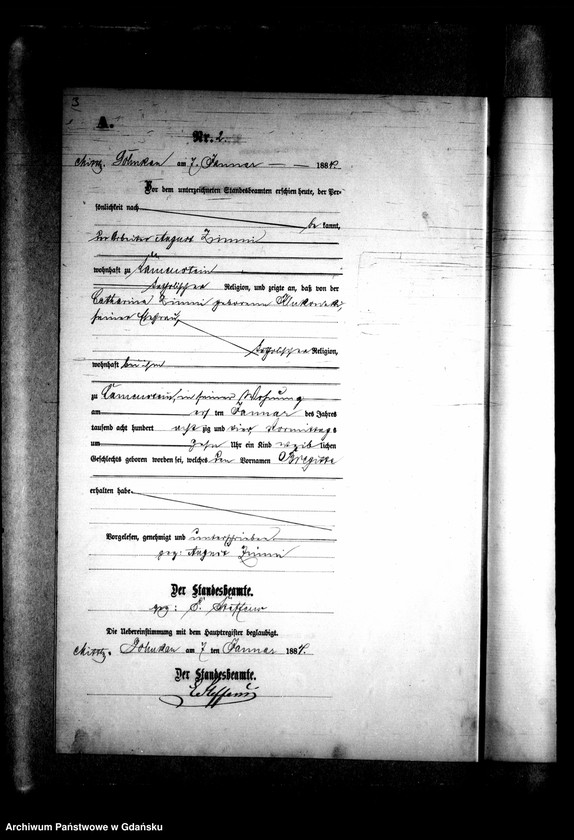 3
A.
Nr. 2.
Golmkau am 7. Januar 1884.
Vor dem unterzeichneten Standesbeamten erschien heute, der Per-
sönlichkeit nach
be kannt,
der Arbeiter August
wohnhaft zu
katholischer Religion, und zeigte an, daß von der
Catharina geborene
seiner Ehefrau,
katholischer Religion,
wohnhaft bei ihm
zu in seiner Wohnung
am ten Januar des Jahres
tausend acht hundert acht zig und vier vormittags
um zehn Uhr ein Kind weib lichen
Geschlechts geboren worden sei, welches den Vornamen Brigitta
erhalten habe.
Vorgelesen, genehmigt und unterschrieben
gez: August
Der Standesbeamte.
gez: Steffens
Die Uebereinstimmung mit dem Hauptregister beglaubigt.
Golmkau am 7 ten Januar 1884.
Der Standesbeamte.
Steffens
Archiwum Państwowe w Gdańsku